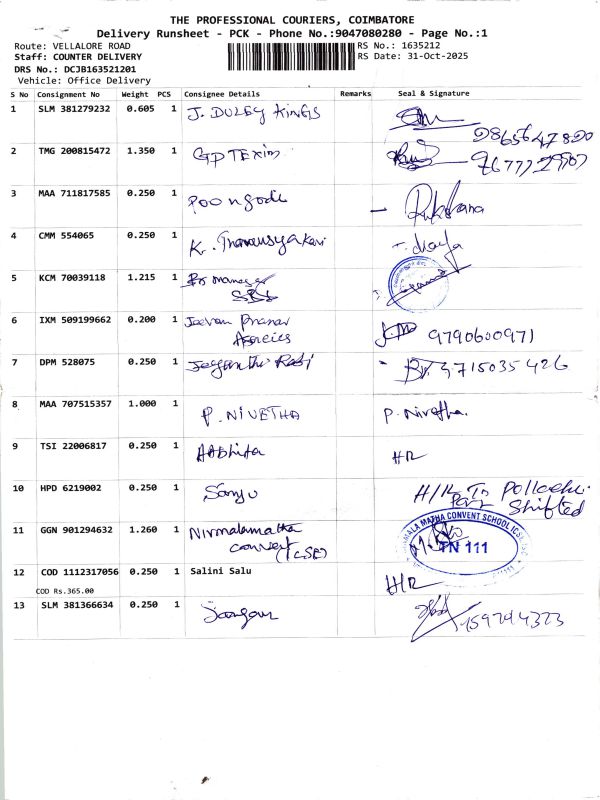 THE PROFESSIONAL COURIERS, COIMBATORE
Delivery Runsheet - PCK - Phone No.:9047080280 - Page No.:1
Route: VELLALORE ROAD
RS No.: 1635212
Staff: COUNTER DELIVERY
RS Date: 31-Oct-2025
DRS No.: DCJB163521201
Vehicle: Office Delivery
S No Consignment No Weight PCS Consignee Details Remarks Seal & Signature
1 SLM 381279232 0.605 1 J. DULEY KINGS
9865647820
2 TMG 200815472 1.350 1 GP TEXIM
3 MAA 711817585 0.250 1 Poongodi
4 CMM 554065 0.250 1 K.
5 KCM 70039118 1.215 1 Br manager
SBI
6 IXM 509199662 0.200 1 Jeevan Pranav
Agencies 9790600971
7 DPM 528075 0.250 1 Jeyanthi Rabi 9715035426
8 MAA 707515357 1.000 1 P. NIVETHA P. Nivetha.
9 TSI 22006817 0.250 1 H/R
10 HPD 6219002 0.250 1 Sanju H/R To Pollachi
Shifted
11 GGN 901294632 1.260 1 Nirmalamatha
convent
(CSE)
MALA MATHA CONVENT SCHOOL ICS
TN 111
12 COD 1112317056 0.250 1 Salini Salu H/R
COD Rs.365.00
13 SLM 381366634 0.250 1